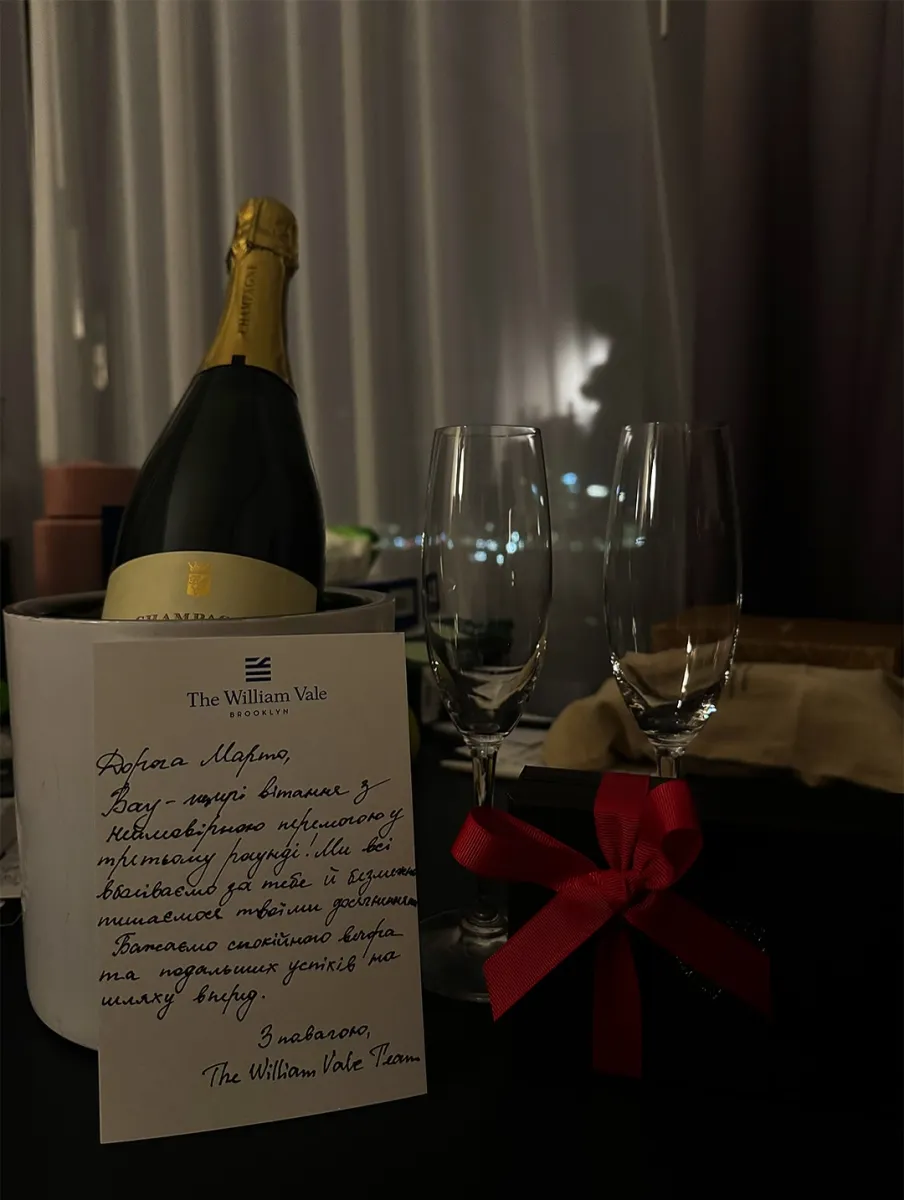 CHAMPAGNE
CHAMPAG
The William Vale
BROOKLYN
Дорога Марто,
Вау – щирі вітання з
неймовірною перемогою у
третьому раунді! Ми всі
вболіваємо за тебе й безмежно
пишаємося твоїми досягненнями
Бажаємо спокійного вечора
та подальших успіхів на
шляху вперед.
З повагою,
The William Vale Team